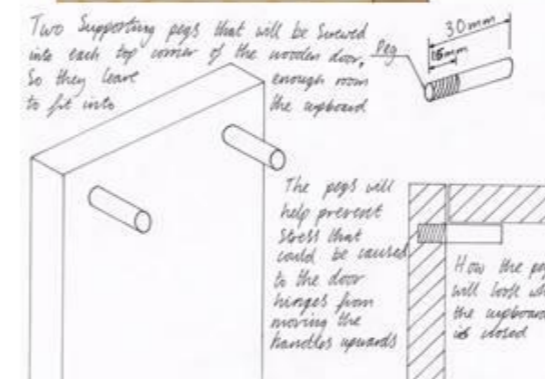 Two Supporting pegs that will be Screwed
into each top corner of the wooden door,
So they leave enough room
to fit into the cupboard
Peg
30mm
15mm
The pegs will
help prevent
stress that
could be caused
to the door
hinges from
moving the
handles upwards
How the
will look
the cupboard
is closed